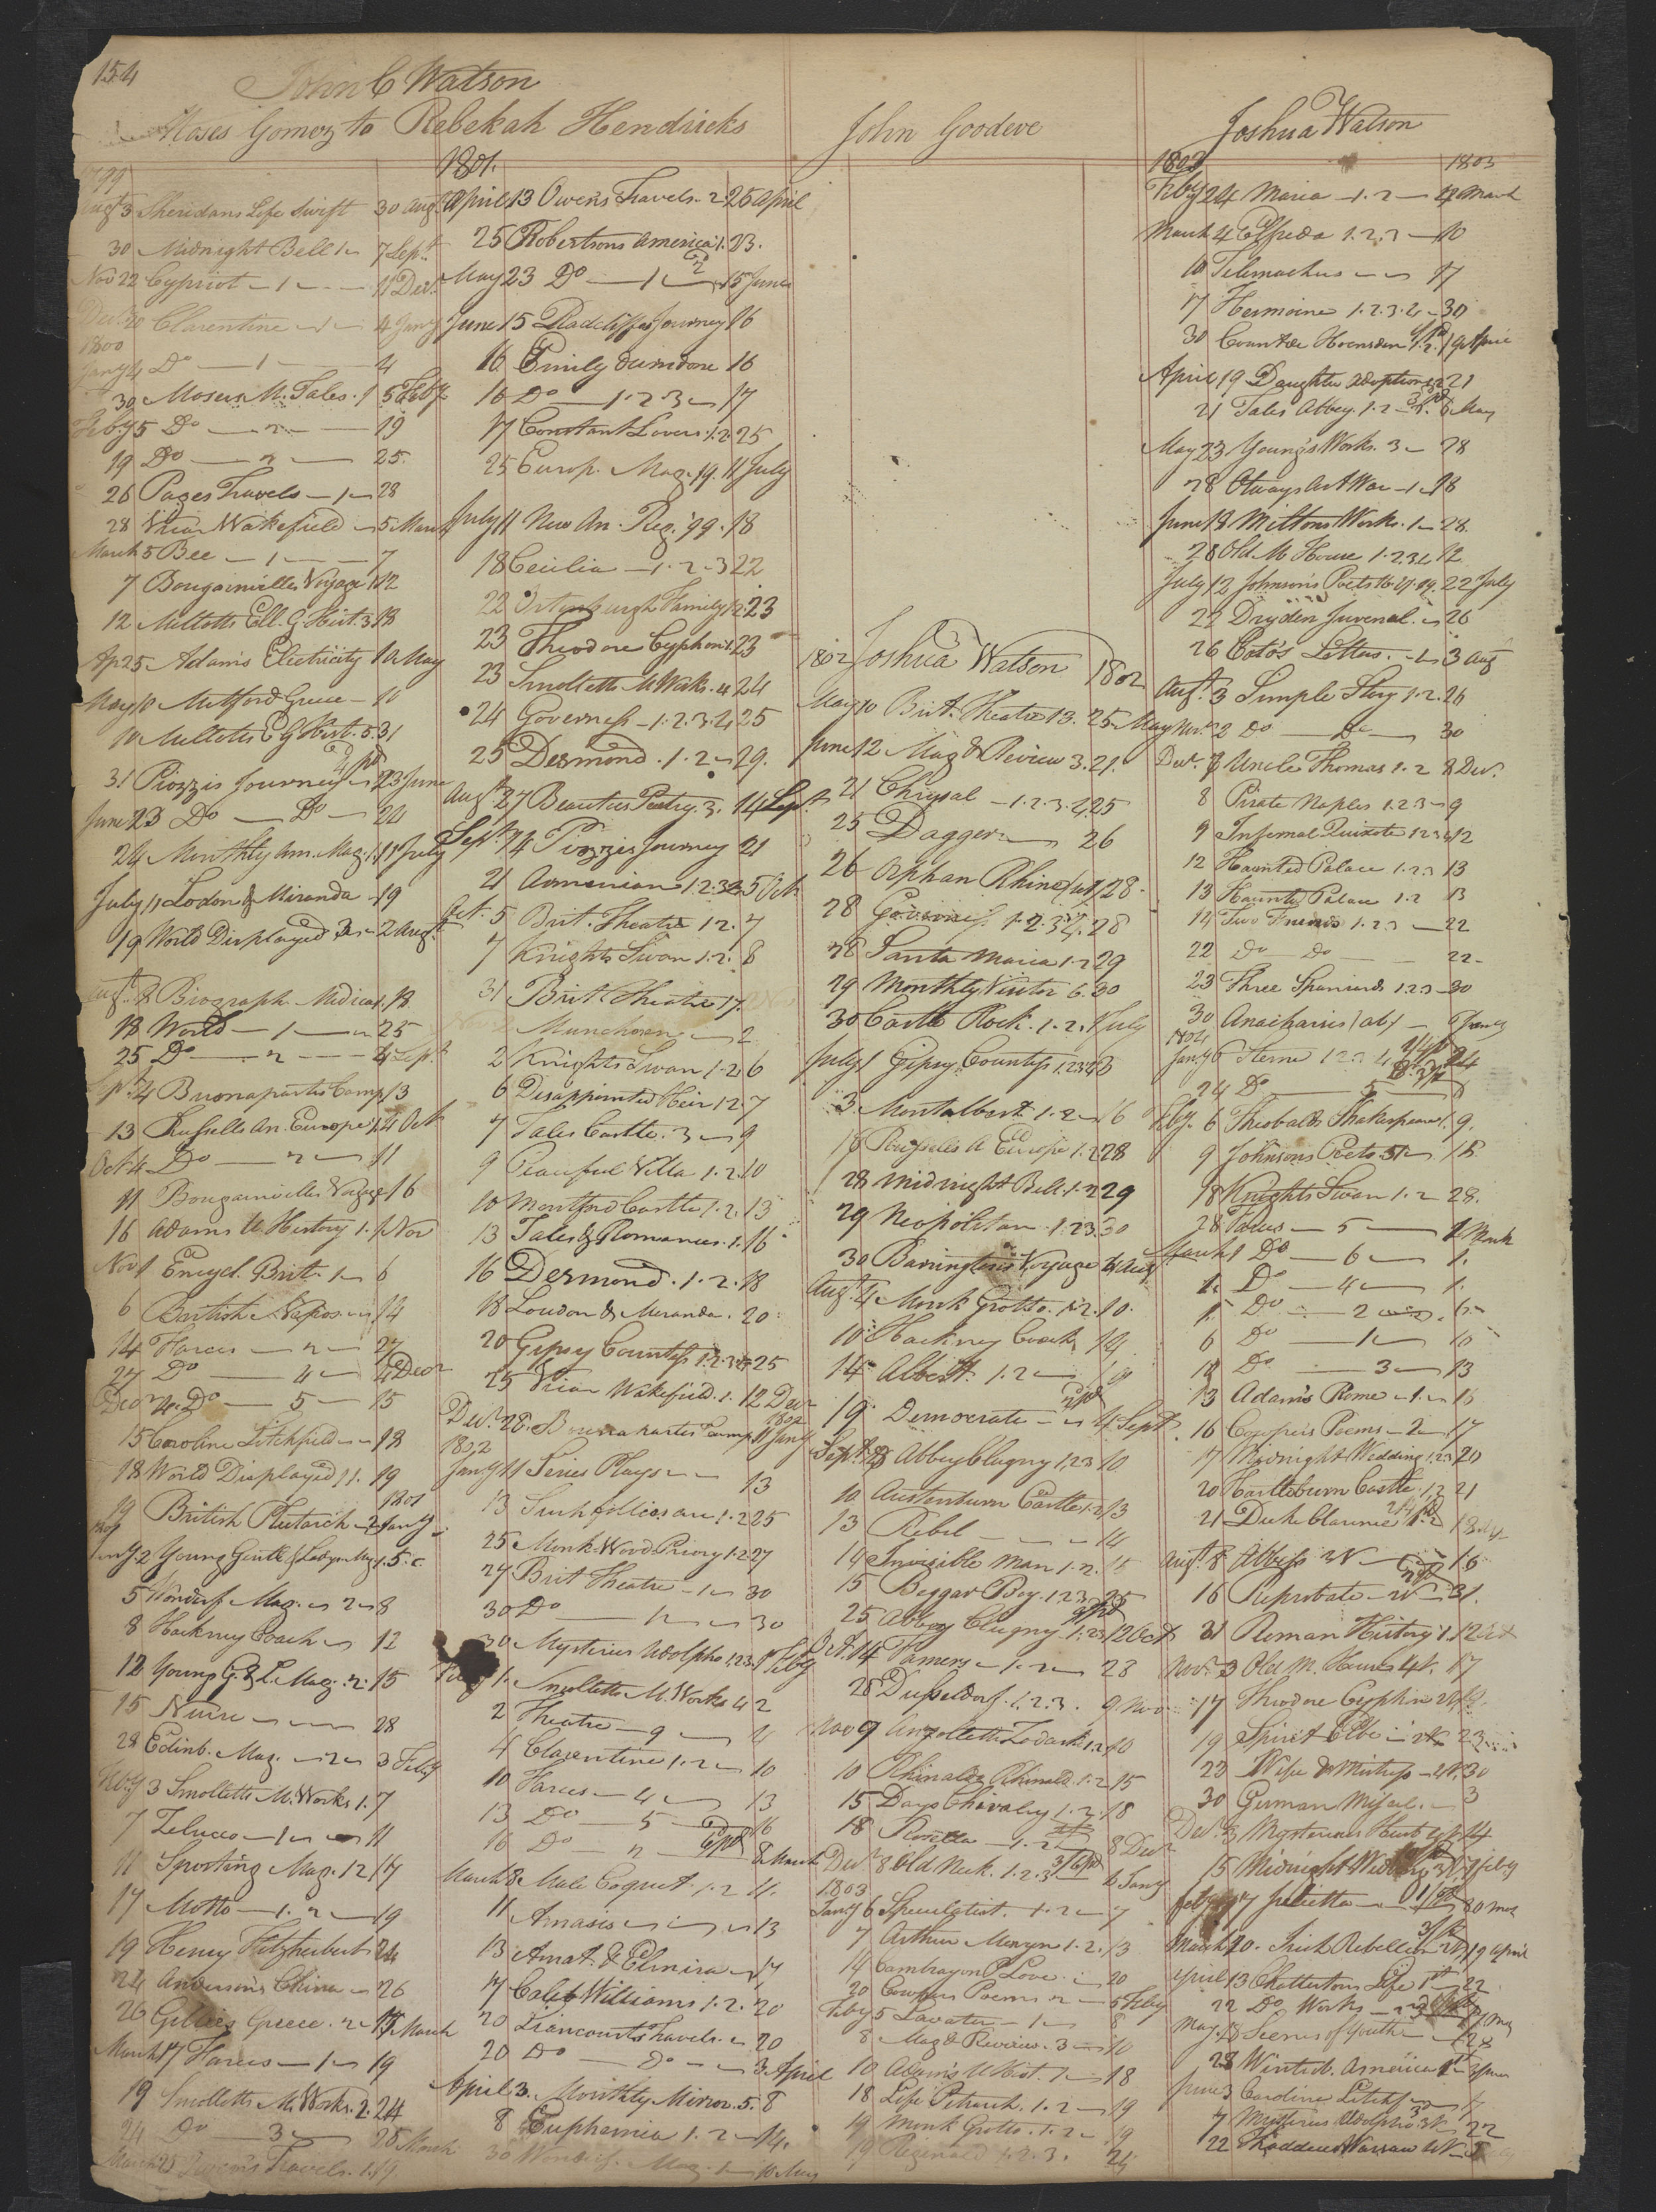 154
John C Watson
Moses Gomez to Rebekah Hendricks
1799
Augt 3 Sheridans Life Swift 30 Augt
30 Midnight Bell 1 7 Sept
Nov 22 Cypriot - 1 11 Decr
Decr 20 Clarentine - 1 - 4 Jany
1800
Jany 4 Do - 1 - 4
30 Moser M. Tales. 1 5 Feby
Feby 5 Do - 2 - 19
19 Do - 2 - 25.
26 Pages Travels - 1 - 28
28 Vicar Wakefield - 5 March
March 5 Bee - 1 - 7
7 Bougainvilles Voyage 12
12 Millotts Ell. G. Hist. 3 18
Ap 25 Adams Electricity 10 May
May 10 Mitford Greece - 10
10 Millotts E G Hist. 5. 31
31 Piozzis Journey 23 June
June 23 Do - Do - 24
24 Monthly Am. Mag. 1. 11 July
July 11 Lodon & Miranda - 19
19 World Displayed 2 Augt
Augt 2 Biograph. Medica 1. 18
18 World - 1 - 25
25 Do - 2 - 4 Sept
Sept 4 Buonapartes Camp 13
13 Russells An. Europe 1. 4 Oct
Oct 4 Do - 2 - 11
11 Bougainvilles Voyage 16
16 Adams U History 1. 1 Nov
Nov 1 Encycl. Brit. 1 - 6
6 British Nepos - 14
14 Farces - 2 - 27
27 Do - 4 - 4 Decr
Decr 4. Do - 5 - 15
15 Caroline Litchfield - 18
18 World Displayed 11. 19
19 British Plutarch - 2 Jany
1801
Jany 2 Young Gentle & Ladys Mag 1. 5
5 Wonderf. Mag. 2 - 8
8 Hackney Coach - 12
12 Young G. & L. Mag. 2. 15
15 Nurse - 28
28 Edinb. Mag. - 2 - 3 Feby
Feby 3 Smolletts M. Works 1. 7
7 Zeluco - 1 - 11
11 Sporting Mag. 12 17
17 Motto - 1. 2 - 19
19 Henry Fitzherbert 24
24 Andersons China - 26
26 Gillies Greece. 2 - 17 March
March 17 Farces - 1 - 19
19 Smolletts M. Works. 2. 24
24 Do - 3 - 25 March
March 25 Owen's Travels. 1. 19
1801.
April 13 Owen's Travels. 2. 25 April
25 Robertsons America 1. 23.
May 23 Do - 1 - 15 June
June 15 Radcliffes Journey 16
16 Emily Dunsdore 16
16 Do - 1. 2. 3 - 17
17 Constant Lovers 1. 2. 25
25 Europ. Mag. 19. 11 July
July 11 New An. Reg. 99. 18
18 Cecilia - 1. 2 - 3 22
22 Ortenburgh Family 1. 2. 23
23 Theodore Cyphon 1. 23
23 Smolletts M. Works. 4 24
24 Governess - 1. 2. 3. 4 25
25 Desmond. 1. 2 - 29.
Augt 27 Beauties Poetry. 3. 14 Sept
Sept 14 Piozzis Journey 21
21 Armenian 1. 2. 3. 4. 5 Oct
Oct. 5 Brit. Theatre 12. 7
7 Knights Swan 1. 2. 8
31 Brit. Theatre 17.
Munchosen - 2
2 Knights Swan 1. 2 6
6 Disappointed Heir 1 2. 7
7 Tales Castle. 3 - 9
9 Peaceful Villa 1. 2. 10
10 Montford Castle 1. 2. 13
13 Tales & Romances. 1. 16
16 Desmond. 1. 2. 18
18 Loudon & Miranda. 20
20 Gipsy Countess 1. 2. 3. 4 25
25 Vicar Wakefield. 1. 12 Decr
Decr 28. Bonna partes Camp. 11 Jany
1802
Jany 11 Series Plays - 13
13 Such follies are 1. 2 25
25 Monk-Wood Priory 1. 2 27
27 Brit Theatre - 1 - 30
30 Do - 12 - 30
30 Mysteries Udolpho 1. 2. 3. 1 Feby
Feby 1. Smolletts M. Works 4 2
2 Theatre - 9 - 4
4 Clarentine 1. 2 - 10
10 Farces - 4 - 13
13 Do - 5 - 16
16 Do - 2 - 8 March
March 8 Male Coquet. 1. 2 11.
11 Amasis - 13
13 Amat. & Elmira - 17
17 Caleb Williams 1. 2. 20
20 Liancourts Travels. - 20
20 Do - Do - 3 April
April 3. Monthly Mirror. 5. 8
8 Euphemia 1. 2 - 14.
30 Wonderf. Mag. 1 - 10 May
John Goodeve
1802 Joshua Watson 1802
May 10 Brit. Theatre 13. 25 May
June 12 Mag & Review 3. 21.
21 Chrysal - 1. 2. 3. 4. 25
25 Dagger - 26
26 Orphan Rhine 28
28 Governess. 1. 2. 3. 4. 28
28 Santa Maria 1. 2 29
29 Monthly Visitor 6. 30
30 Castle Rock. 1. 2. 1 July
July 1 Gipsy Countess 1. 2. 3. 4 3
3 Montalbert 1. 2 - 16
16 Russells A Europe 1. 2 28
28 Midnight Bell. 1. 2 29
29 Neopolitan. 1. 2. 3. 30
30 Barringtons Voyage 4 Aug
Augt. 4 Monk Grotto. 1. 2. 10.
10 Hackney Coach 14
14 Albert. 1. 2 - 19
19 Democrate - 4 Sept
Sept. 8 Abbey Clugny 1. 2. 3 10
10 Austenburn Castle 1. 2 13
13 Rebel - 14
14 Invisible Man 1. 2. 15
15 Beggar Boy. 1. 2. 3. 25
25 Abbey Clugny 1. 2. 3. 12 Oct
Oct. 14 Tamery - 1. 2 - 28
28 Dusseldorf. 1. 2. 3. 9 Nov
Nov 9 Anzoletta Zadaski 1. 2 10
10 Rhinaldo Rhinald. 1. 2 15
15 Days Chivalry 1. 2. 18
18 Rosella - 1. 2 8 Decr
Decr 8 Old Nick. 1. 2. 3 6 Jany
1803
Jany 6 Speculatist. 1. 2 - 7
7 Arthur Mervyn 1. 2. 13
14 Cambrayon P. Love. - 20
20 Cowpers Poems 2 - 5 Feby
Feby 5 Lavater - 1 - 8
8 Mag & Review. 3 - 10
10 Adams U Hist. 1 - 18
18 Life Petrarch. 1. 2 - 19
19 Monk Grotto. 1. 2 - 19
19 Reginald 1. 2. 3. 24
Joshua Watson
1803 1803
Feby 24 Maria - 1. 2 - 4 March
March 4 Elfrida 1. 2. 3 - 10
10 Telemachus - 17
17 Hermoine 1. 2. 3. 4 - 30
30 Count de Hoensdern 1. 2. 19 April
April 19 Daughter Adoption 1. 2 21
21 Tales Abbey. 1. 2 - 6 May
May 23 Young's Works. 3 - 28
28 Otways Art War - 1 - 18
June 18 Miltons Works. 1 - 28.
28 Old M. House 1. 2. 3. 4 12
July 12 Johnson's Poets 16. 17. 19. 22 July
22 Dryden Juvenal. - 26
26 Cato's Letters. - 1 - 3 Aug
Augt. 3 Simple Story 1. 2. 26
Novr. 22 Do - Do - 30
Decr. 7 Uncle Thomas 1. 2 8 Decr.
8 Pirate Naples 1. 2. 3 - 9
9 Infernal Quixote 1 2 3 4 12
12 Haunted Palace 1. 2. 3 13
13 Haunted Palace 1. 2 13
14 Two Friends 1. 2. 3 - 22
22 Do - Do - 22-
23 Three Spaniards 1. 2. 3 - 30
30 Anacharsis (ab) - 6 Jany
1804
Jany 6 Sterne 1 2. 3 4 24
24 Do - 5 - 6
Feby. 6 Theobalds Shakespeare 1. 9.
9 Johnsons Poets 18.
18 Knights Swan 1. 2 - 28.
28 Tales - 5 - 1 March
March 1 Do - 6 - 1.
1. Do - 4 - 1.
1 Do - 2 - 6
6 Do - 1 - 10
10 Do - 3 - 13
13 Adams Rome - 1. - 16
16 Cowper's Poems - 2 - 17
17 Midnight Wedding 1. 2. 3 20
20 Hartleburn Castle. 1. 2 21
21 Duke Clarence 1. 2
Augt. 8 Abbess 2V - 16
16 Reprobate - 2V - 31.
31 Roman History 1. 12 Oct
Novr. 3 Old M. House 4V. 17
17 Theodore Cyphon 2V. 19.
19 Spirit Elbe - 2V - 23
23 Wife & Mistress - 4V. 30
30 German Misal. - 3
Decr. 3 Mysterious Husb 4V. 14
15 Midnight Wedding 3V. 7 Feby
Feby 7 Julietta -
March 20. Irish Rebellion 2V 19 April
April 13 Chattertons Life 1st 22
22 Do Works - 17 May
May 18 Scenes of Youth - 28
28 Winterb. America 1st 3 June
June 3 Caroline Litchf - 7
7 Mysteries Udolpho 3V. 22
22 Thaddeus Warsaw 4V -